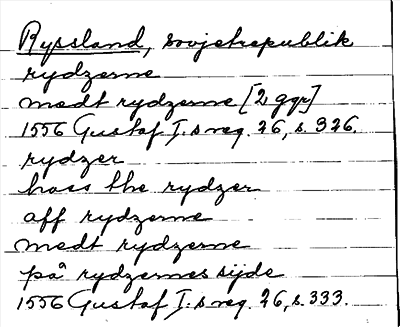 Ryssland, sovjetrepublik
rydzerne
medt rydzerne [2 ggr]
1556 Gustaf I.s reg. 26, s. 326.
rydzer
hoss the rydzer
aff rydzerne
medt rydzerne
på rydzernes sijde
1556 Gustaf I.s reg. 26, s. 333.